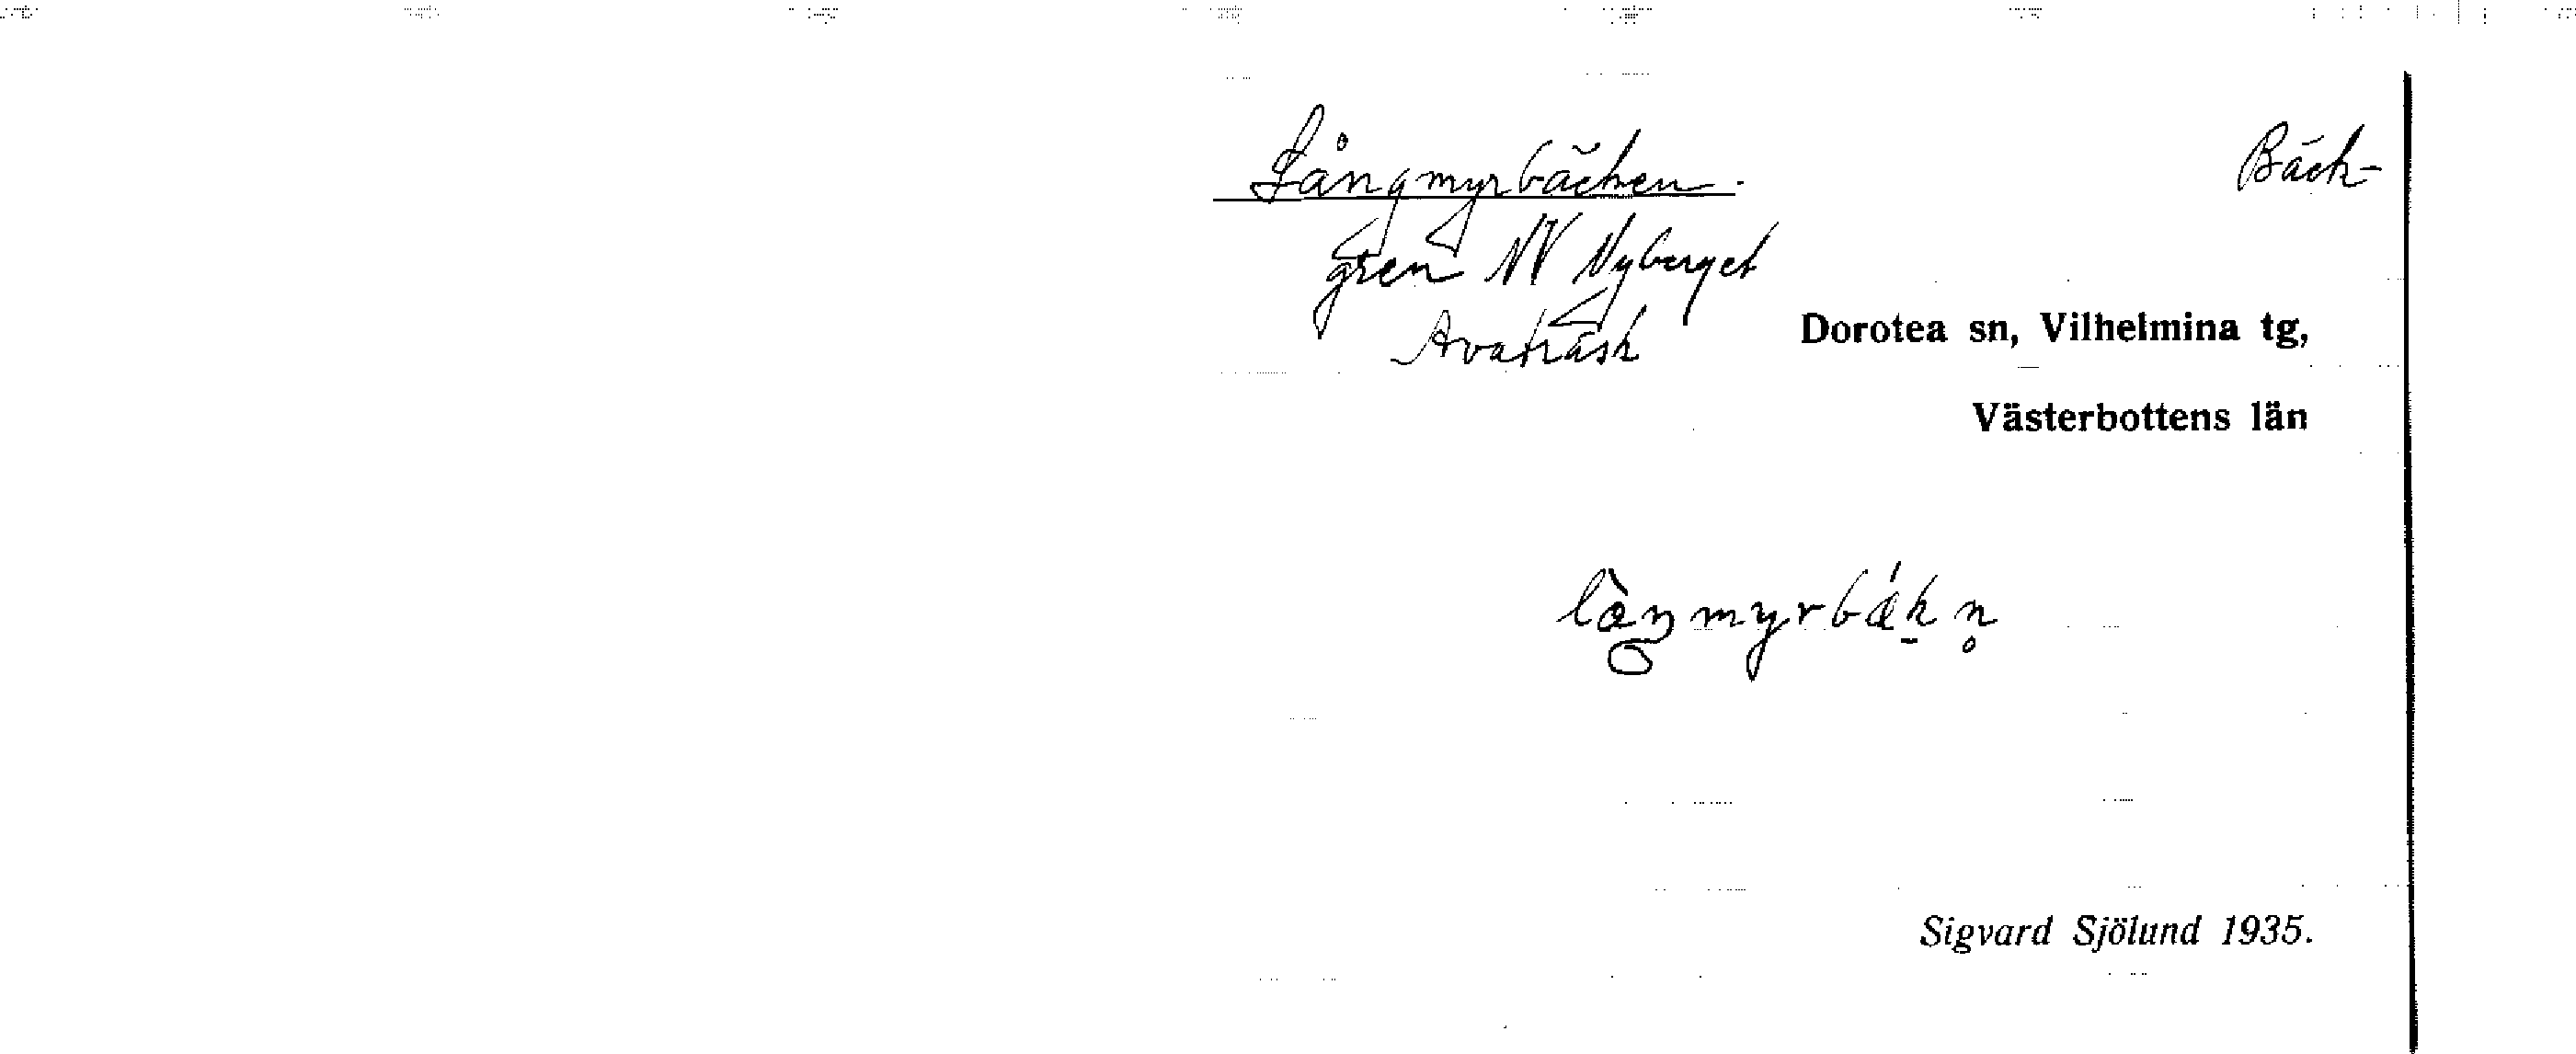 Långmyrbäcken. Bäck-
gren NV Nyberget
Avaträsk
Dorotea sn, Vilhelmina tg,
Västerbottens län
Sigvard Sjölund 1935.